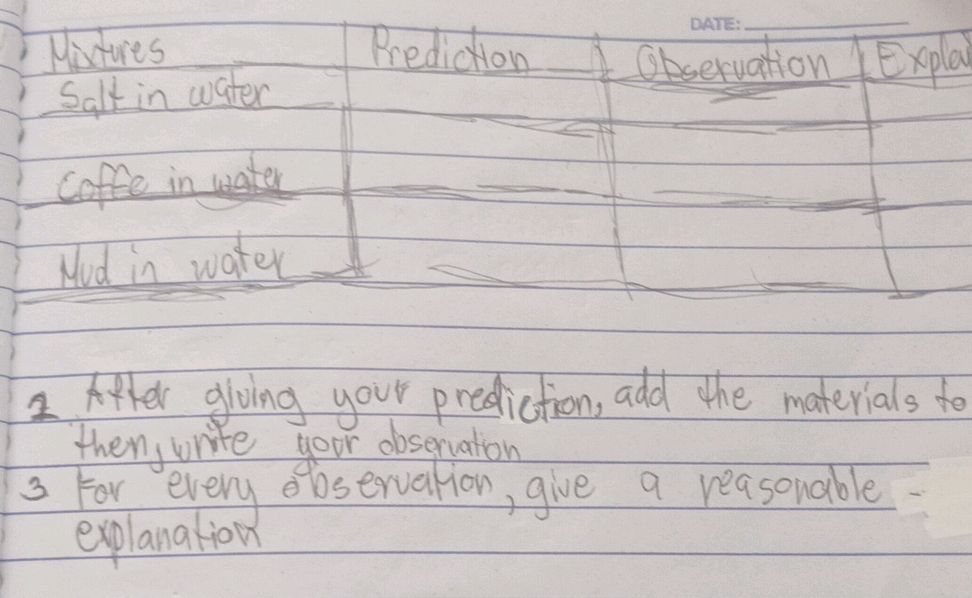 DATE:
Mixtures Prediction Observation Explan
Salt in water
Coffe in water
Mud in water
2 After giving your prediction, add the materials to
then, write your observation
3 For every observation, give a reasonable -
explanation